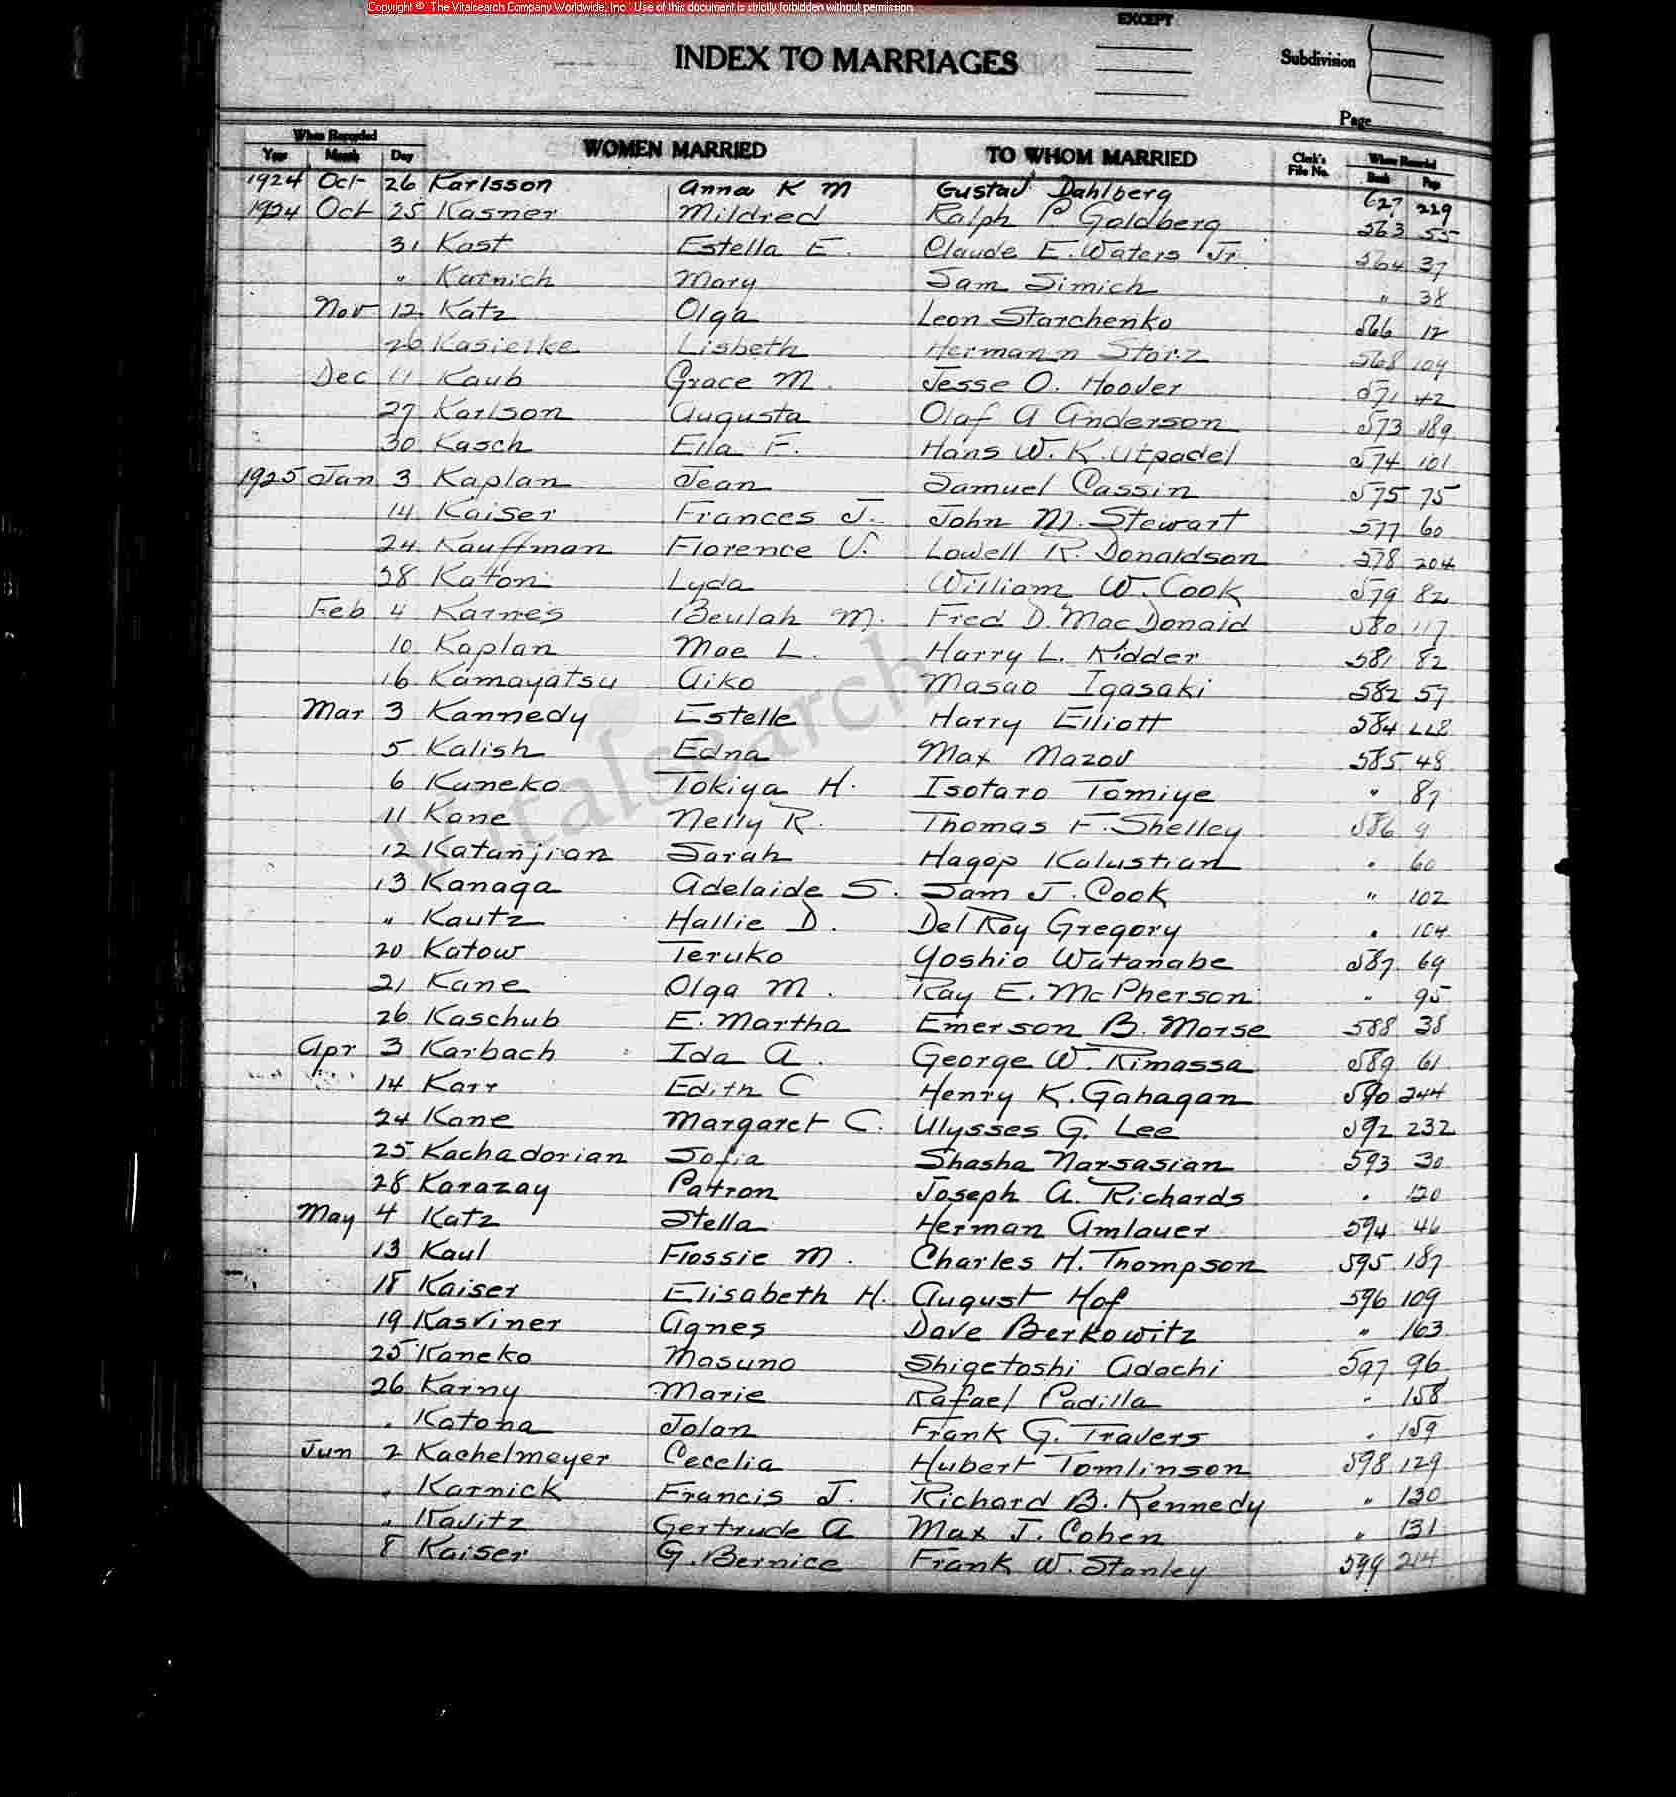 Copyright © The Vitalsearch Company Worldwide, Inc. Use of this document is strictly forbidden without permission.
EXCEPT
INDEX TO MARRIAGES
Subdivision
Page
When Recorded WOMEN MARRIED TO WHOM MARRIED Clerk's File No. Where Recorded
Year Month Day Book Page
1924 Oct 26 Karlsson Anna K M Gustav Dahlberg 627 229
1924 Oct 25 Kasner Mildred Ralph P. Goldberg 563 55
31 Kast Estella E. Claude E. Waters Jr. 564 37
" Katnich Mary Sam Simich " 38
Nov 12 Katz Olga Leon Starchenko 566 12
26 Kasielke Lisbeth Hermann Storz 568 109
Dec 11 Kaub Grace M. Jesse O. Hoover 571 42
27 Karlson Augusta Olaf A Anderson 573 189
30 Kasch Ella F. Hans W. K. Utpadel 574 101
1925 Jan 3 Kaplan Jean Samuel Cassin 575 75
14 Kaiser Frances J. John M. Stewart 577 60
24 Kauffman Florence V. Lowell R. Donaldson 578 204
28 Katon Lyda William W. Cook 579 82
Feb 4 Karnes Beulah M. Fred D. MacDonald 580 117
10 Kaplan Mae L. Harry L. Kidder 581 82
16 Kamayatsu Aiko Masao Igasaki 582 57
Mar 3 Kannedy Estelle Harry Elliott 584
5 Kalish Edna Max Mazov 585 48
6 Kaneko Tokiya H. Isotaro Tomiye " 87
11 Kane Nelly R. Thomas F. Shelley 586 9
12 Katanjian Sarah Hagop Kalustian " 60
13 Kanaga Adelaide S. Sam J. Cook " 102
" Kautz Hallie D. Del Roy Gregory " 104
20 Katow Teruko Yoshio Watanabe 587 69
21 Kane Olga M. Ray E. McPherson " 95
26 Kaschub E. Martha Emerson B. Morse 588 38
Apr 3 Karbach Ida A. George W. Rimassa 589 61
14 Karr Edith C Henry K. Gahagan 590 244
24 Kane Margaret C. Ulysses G. Lee 592 232
25 Kachadorian Sofia Shasha Narsasian 593 30
28 Karazay Patron Joseph A. Richards " 120
May 4 Katz Stella Herman Amlauer 594 46
13 Kaul Flossie M. Charles H. Thompson 595 187
18 Kaiser Elisabeth H. August Hof 596 109
19 Kasviner Agnes Dave Berkowitz " 163
25 Kaneko Masuno Shigetoshi Adachi 597 96
26 Karny Marie Rafael Padilla " 158
" Katona Jolan Frank G. Travers " 159
Jun 2 Kachelmeyer Cecelia Hubert Tomlinson 598 129
" Karnick Francis J. Richard B. Kennedy " 130
" Kavitz Gertrude A Max J. Cohen " 131
8 Kaiser G. Bernice Frank W. Stanley 599 214
Vitalsearch